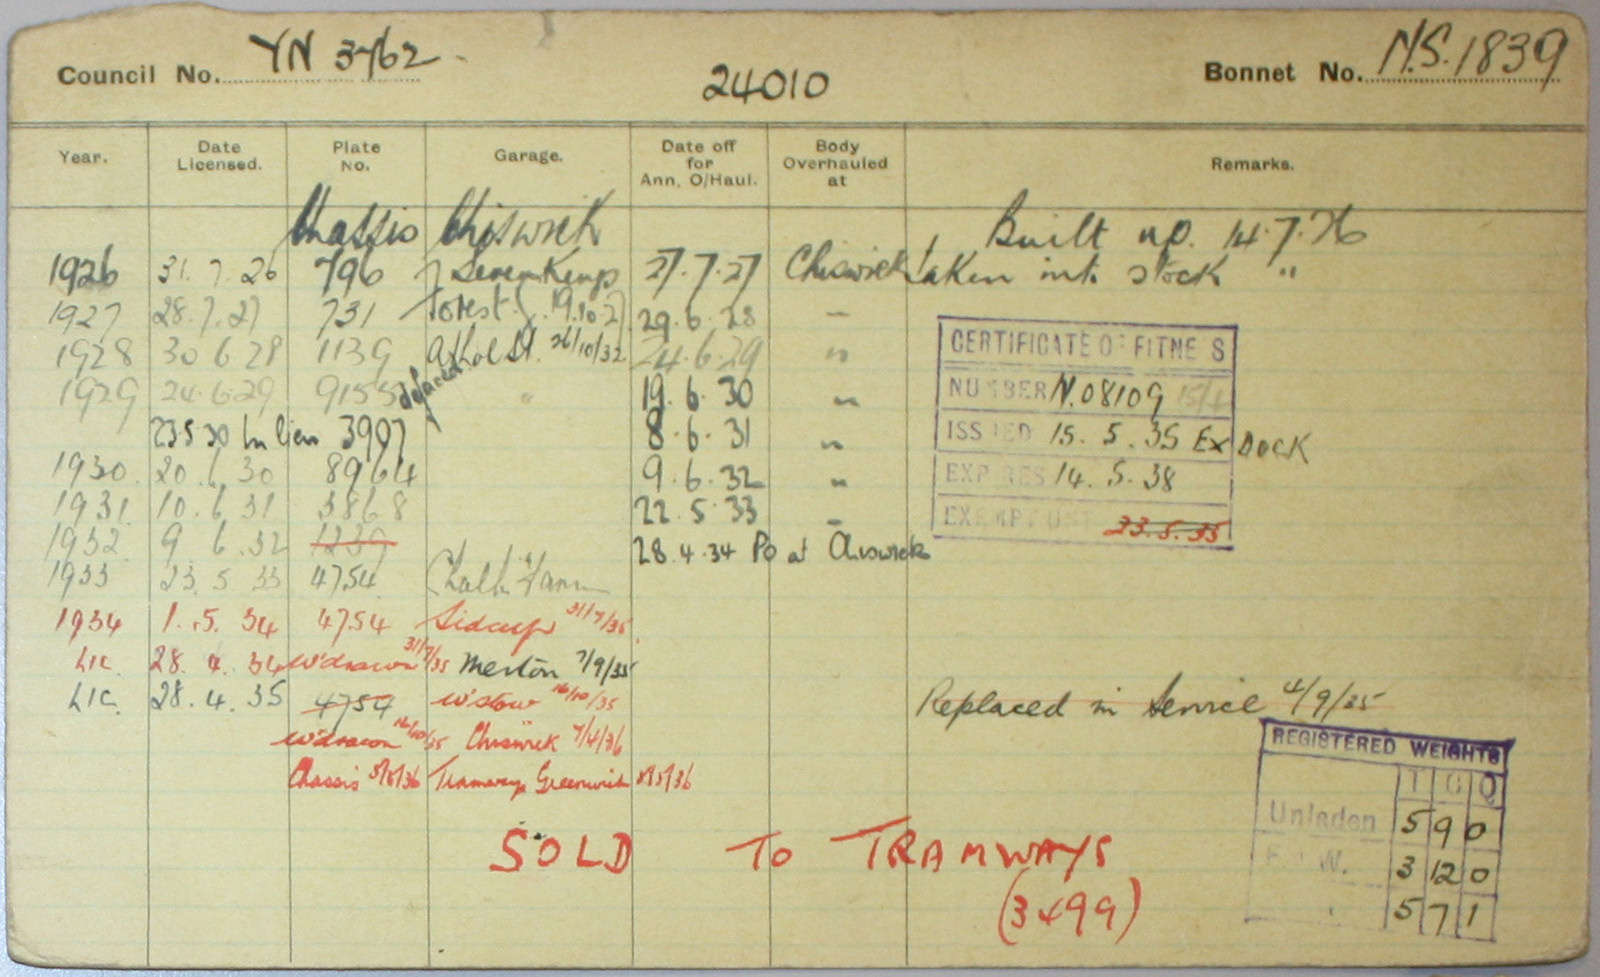 Council No. YN 3762
24010
Bonnet No. N.S. 1839
Year. Date Licensed. Plate No. Garage. Date off for Ann, O/Haul. Body Overhauled at Remarks.
Chassis Chiswick Built up. 14.7.26
1926 31.7.26 796 Seven Kings 27.7.27 Chiswick taken into stock "
1927 28.7.27 731 Forest G. 19.10.27 29.6.28 "
1928 30 6 28 1139 Athol St. 26/10/32 24.6.29 "
1929 24.6.29 9155 defaced " 19.6.30 "
23.5.30 In lieu 3997 8.6.31 "
1930 20.6.30 8964 9.6.32 "
1931 10.6.31 3868 22.5.33 "
1932 9.6.32 1239 28.4.34 Po at Chiswick
1933 23.5.33 4754 Chalk Farm
1934 1.5.34 4754 Sidcup 31/7/35
Lic. 28.4.34 W'drawn 31/7/35 Merton 7/9/35
Lic. 28.4.35 4754 W'stow 16/10/35 Replaced in Service 4/9/35
W'drawn 16/10/35 Chiswick 7/4/36
Chassis 5/5/36 Tramways Greenwich 5/5/36
SOLD TO TRAMWAYS
(3499)
CERTIFICATE OF FITNESS
NUMBER N.08109 15/4
ISSUED 15.5.35 Ex DOCK
EXPIRES 14.5.38
EXEMPT UNT 23.5.35
REGISTERED WEIGHTS
T C Q
Unladen 5 9 0
F. W. 3 12 0
5 7 1